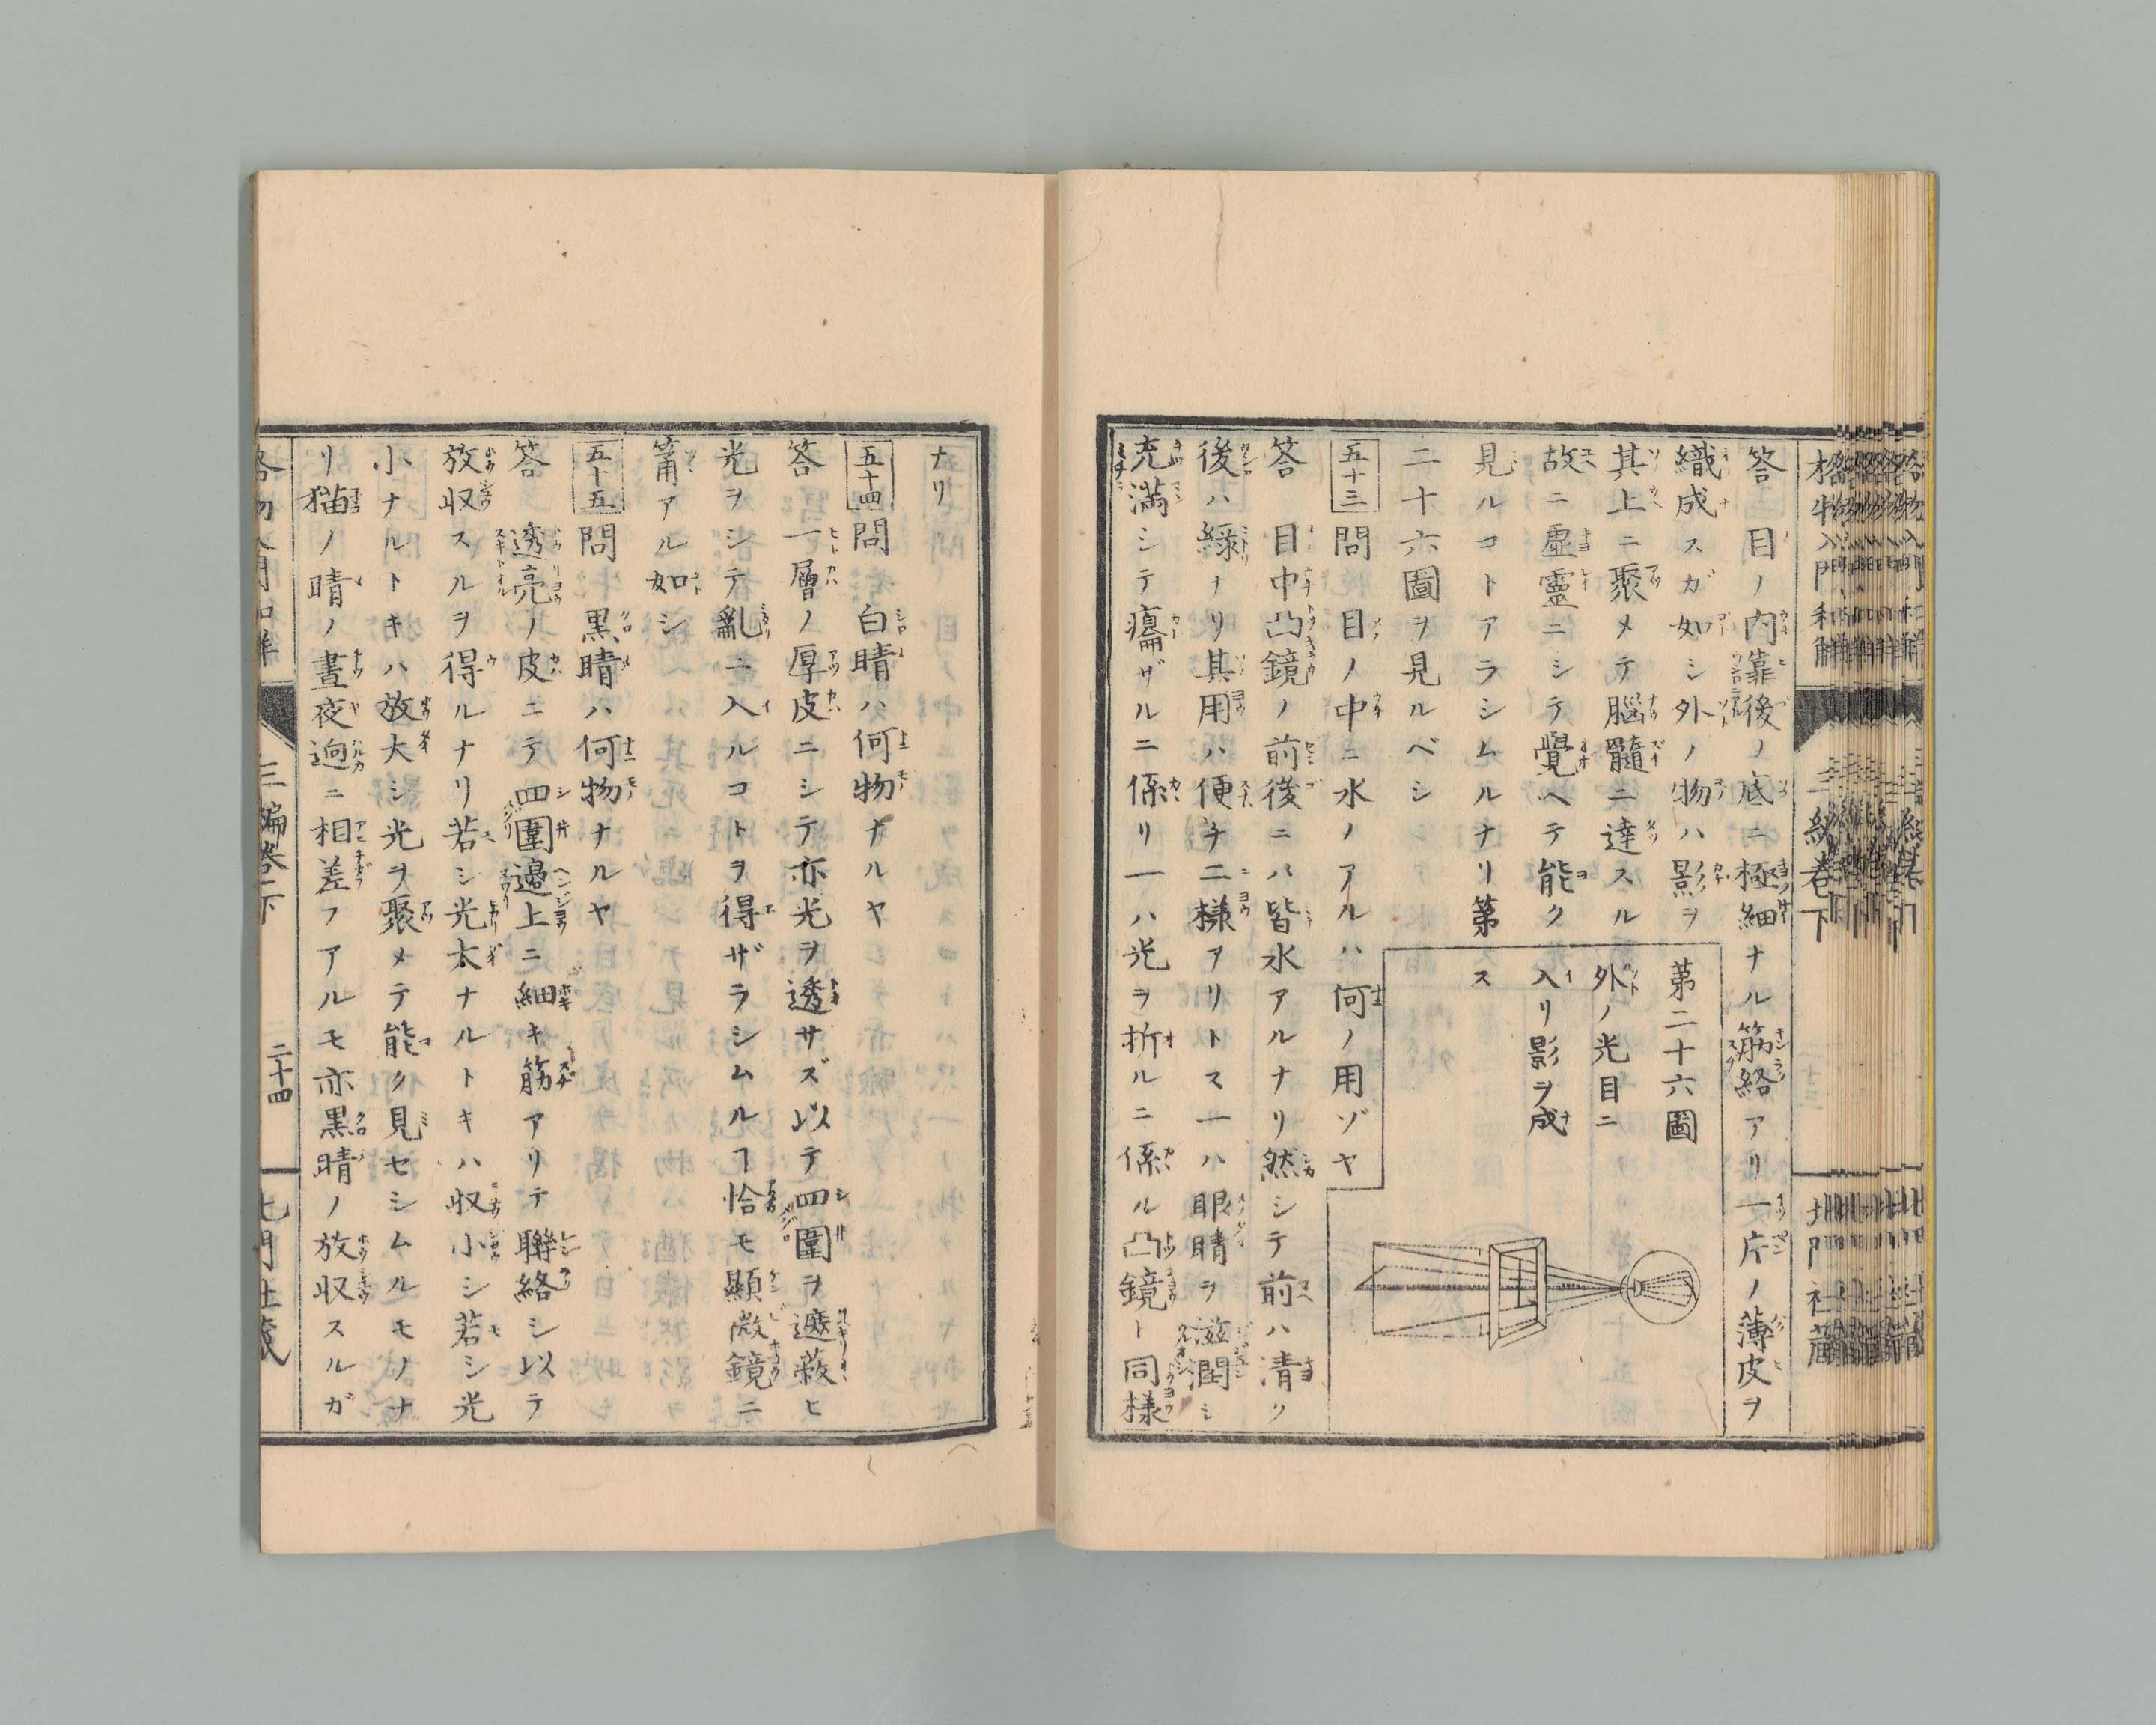 答 目ノ内靠後ノ底ニ極細ナル筋絡アリ一片ノ薄皮ヲ
織成スガ如シ外ノ物ハ影ヲ
其上ニ聚メテ腦髓ニ達スル
故ニ虚靈ニシテ覺ヘテ能ク
見ルコトアラシムルナリ第
二十六圖ヲ見ルベシ
第二十六圖
外ノ光目ニ
入リ影ヲ成
ス
五十三 問 目ノ中ニ水ノアルハ何ノ用ゾヤ
答 目中凸鏡ノ前後ニハ皆水アルナリ然シテ前ハ清ク
後ハ綠ナリ其用ハ便チ二樣アリトス一ハ眼睛ヲ滋潤シ
充滿シテ癟ザルニ係リ一ハ光ヲ折ルニ係ル凸鏡ト同樣
ナリ
五十四 問 白睛ハ何物ナルヤ
答 一層ノ厚皮ニシテ亦光ヲ透サズ以テ四圍ヲ遮蔽ヒ
光ヲシテ亂ニ入ルコトヲ得ザラシムルヿ恰モ顯微鏡ニ
筩アル如シ
五十五 問 黒睛ハ何物ナルヤ
答 透亮ノ皮ニテ四圍邉上ニ細キ筋アリテ聯絡シ以テ
放収スルヲ得ルナリ若シ光太ナルトキハ収小シ若シ光
小ナルトキハ放大シ光ヲ聚メテ能ク見セシムルモノナ
リ猫ノ睛ノ晝夜逈ニ相差フアルモ亦黒睛ノ放収スルガ
三編卷下
二十四